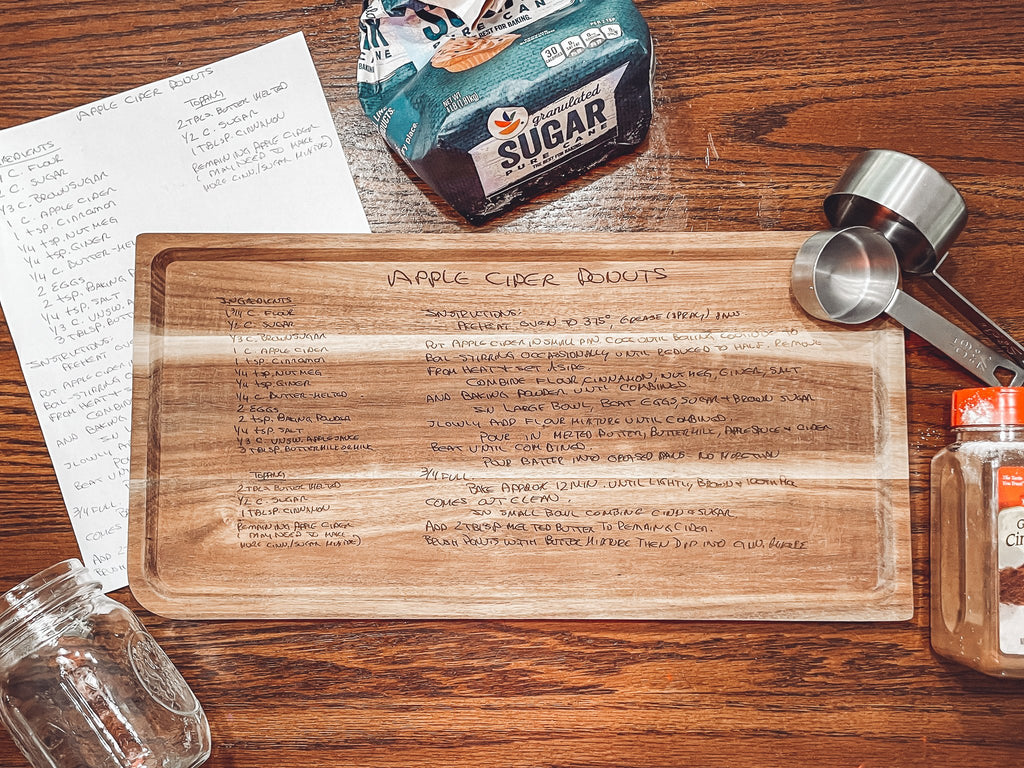 APPLE CIDER DONUTS
TOPPING
2 TBLS BUTTER MELTED
1/2 C. SUGAR
1 TBLSP. CINNAMON
REMAINING APPLE CIDER
( MAY NEED TO MAKE
MORE CINN./SUGAR MIXTURE)
C. FLOUR
C. SUGAR
1/3 C. BROWN SUGAR
1 C. APPLE CIDER
1 tsp. CINNAMON
1/4 tsp. NUTMEG
1/4 tsp. GINER
1/4 C. BUTTER-MEL
2 EGGS
2 tsp. BAKING
1/4 tsp. SALT
1/3 C. UNSW.
3 TBLSP. BUTT
INSTRUCTIONS:
PREHEAT OVEN
PUT APPLE CIDER
BOIL-STIRRING
FROM HEAT +
COMBINE
AND BAKING
IN LARGE
SLOWLY ADD
POUR
BEAT UNTIL
POUR
3/4 FULL.
COMES
ADD 2
BRUSH
PURE CANE
BEST FOR BAKING.
PER 1 TSP
30
CALORIES
NET WT
granulated
SUGAR
PURE CANE
THE BEST FOR BAKING
APPLE CIDER DONUTS
INGREDIENTS
1 3/4 C. FLOUR
1/2 C. SUGAR
1/3 C. BROWN SUGAR
1 C. APPLE CIDER
1 tsp. CINNAMON
1/4 tsp. NUTMEG
1/4 tsp. GINER
1/4 C. BUTTER-MELTED
2 EGGS
2 tsp. BAKING POWDER
1/4 tsp. SALT
1/3 C. UNSW. APPLESAUCE
3 TBLSP. BUTTERMILK OR MILK
TOPPING
2 TBLS BUTTER MELTED
1/2 C. SUGAR
1 TBLSP. CINNAMON
REMAINING APPLE CIDER
( MAY NEED TO MAKE
MORE CINN./SUGAR MIXTURE)
INSTRUCTIONS:
PREHEAT OVEN TO 375°, GREASE (SPRAY) PANS
PUT APPLE CIDER IN SMALL PAN. COOK UNTIL BOILING CONTINUE TO
BOIL-STIRRING OCCASIONALLY UNTIL REDUCED TO HALF. REMOVE
FROM HEAT + SET ASIDE.
COMBINE FLOUR, CINNAMON, NUTMEG, GINER, SALT
AND BAKING POWDER UNTIL COMBINED.
IN LARGE BOWL, BEAT EGGS, SUGAR + BROWN SUGAR
SLOWLY ADD FLOUR MIXTURE UNTIL COMBINED.
POUR IN MELTED BUTTER, BUTTERMILK, APPLESAUCE + CIDER
BEAT UNTIL COMBINED
POUR BATTER INTO GREASED PANS - NO MORE THAN
3/4 FULL.
BAKE APPROX 12 MIN. UNTIL LIGHTLY BROWN + TOOTHPICK
COMES OUT CLEAN.
IN SMALL BOWL COMBINE CINN + SUGAR
ADD 2 TBLSP MELTED BUTTER TO REMAINING CIDER.
BRUSH DONUTS WITH BUTTER MIXTURE THEN DIP INTO